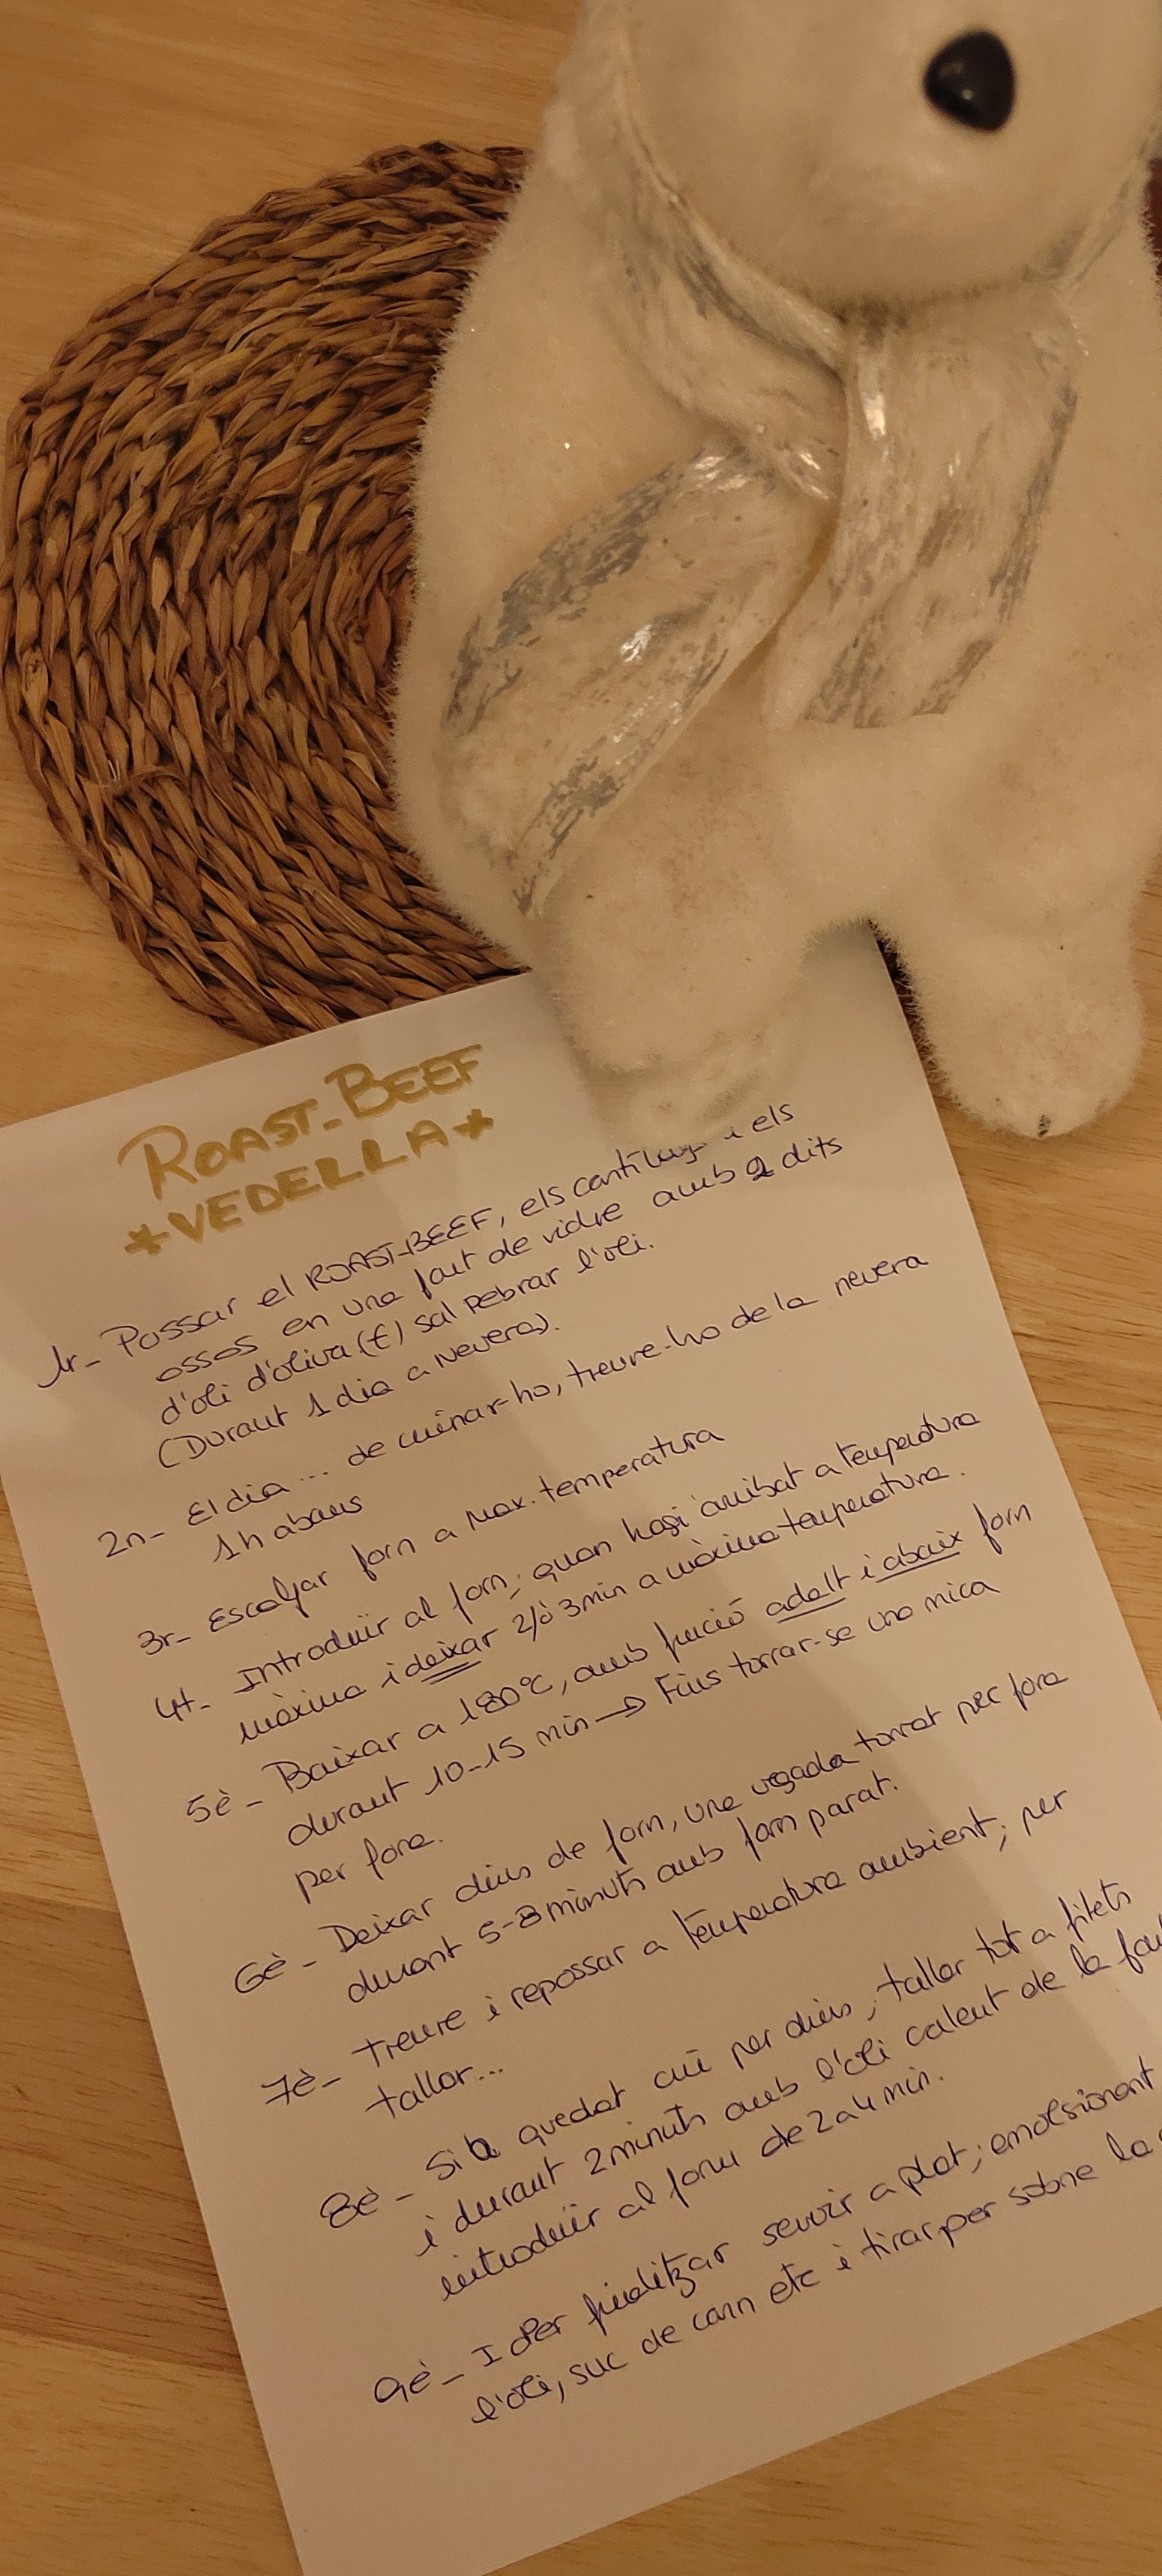 ROAST-BEEF
*VEDELLA*
1r- Possar el ROAST-BEEF, els i els
ossos en una font de vidre amb 2 dits
d'oli d'oliva (t) sal pebrar l'oli.
(Durant 1 dia a Nevera).
2n- El dia ... de cuinar-ho, treure-ho de la nevera
1h abans
3r- Escalfar forn a Max. temperatura
4t- Introduïr al forn; quan hagi arribat a temperatura
màxima i deixar 2/ó 3min a màxima temperatura.
5è- Baixar a 180ºC, amb funció adalt i abaix forn
durant 10-15 min → Fins torrar-se una mica
per fora.
6è- Deixar dins de forn, une vegada torrat per fora
durant 5-8 minuts amb forn parat.
7è- treure i repossar a temperatura ambient; per
tallar...
8è- Si ha quedat cuit per dins, tallar tot a filets
i durant 2 minuts amb l'oli calent de la
introduïr al forn de 2 a 4 min.
9è- I per finalitzar servir a plat; emolsionant
l'oli, suc de carn etc i tirar per sobre la